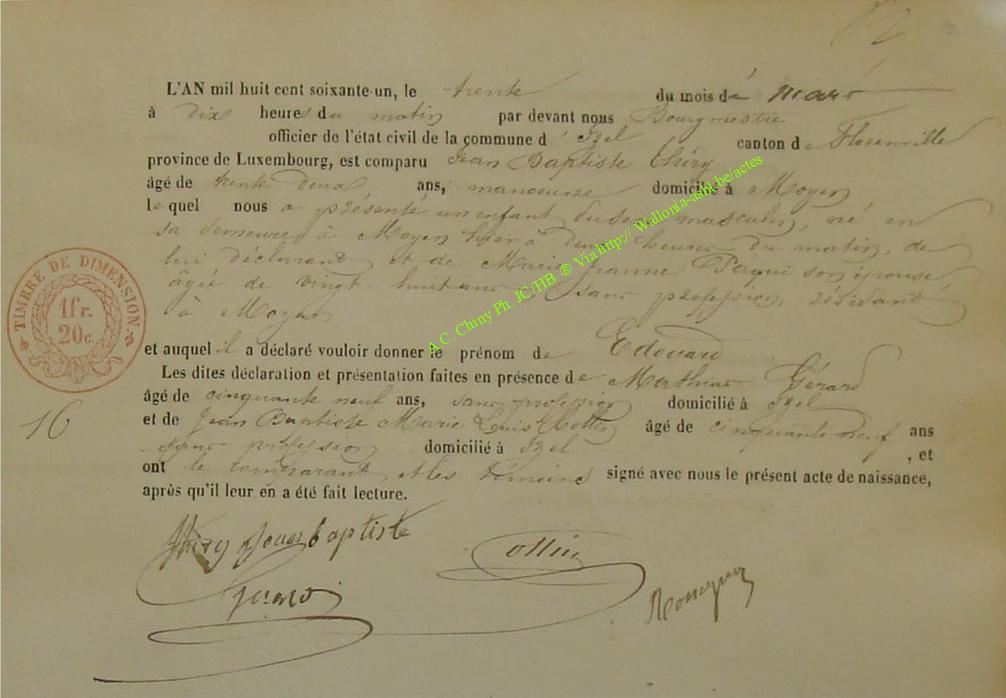 L'AN mil huit cent soixante-un, le trente du mois de mars
à dix heures du matin par devant nous Bourgmestre
officier de l'état civil de la commune d'Izel canton de Florenville
province de Luxembourg, est comparu Jean Baptiste Thiry
âgé de trente deux ans, manoeuvre domicilié à Moyen
lequel nous a présenté un enfant du sexe masculin, né en
sa demeure à Moyen hier à deux heures du matin, de
lui déclarant et de Marie Jeanne Paqui son épouse,
âgée de vingt huit ans, sans profession, résidant
à Moyen
et auquel il a déclaré vouloir donner le prénom de Edouard
Les dites déclaration et présentation faites en présence de Mathias Gérard
âgé de cinquante neuf ans, sans profession domicilié à Izel
et de Jean Baptiste Marie Louis âgé de cinquante neuf ans
sans profession domicilié à Izel , et
ont le comparant et les témoins signé avec nous le présent acte de naissance,
après qu'il leur en a été fait lecture.
Thiry Jean baptiste
Gerard
TIMBRE DE DIMENSION
1fr.
20c.
16
A.C. Chiny Ph. JC/HB ® Via http:// Wallonia-asbl.be/actes